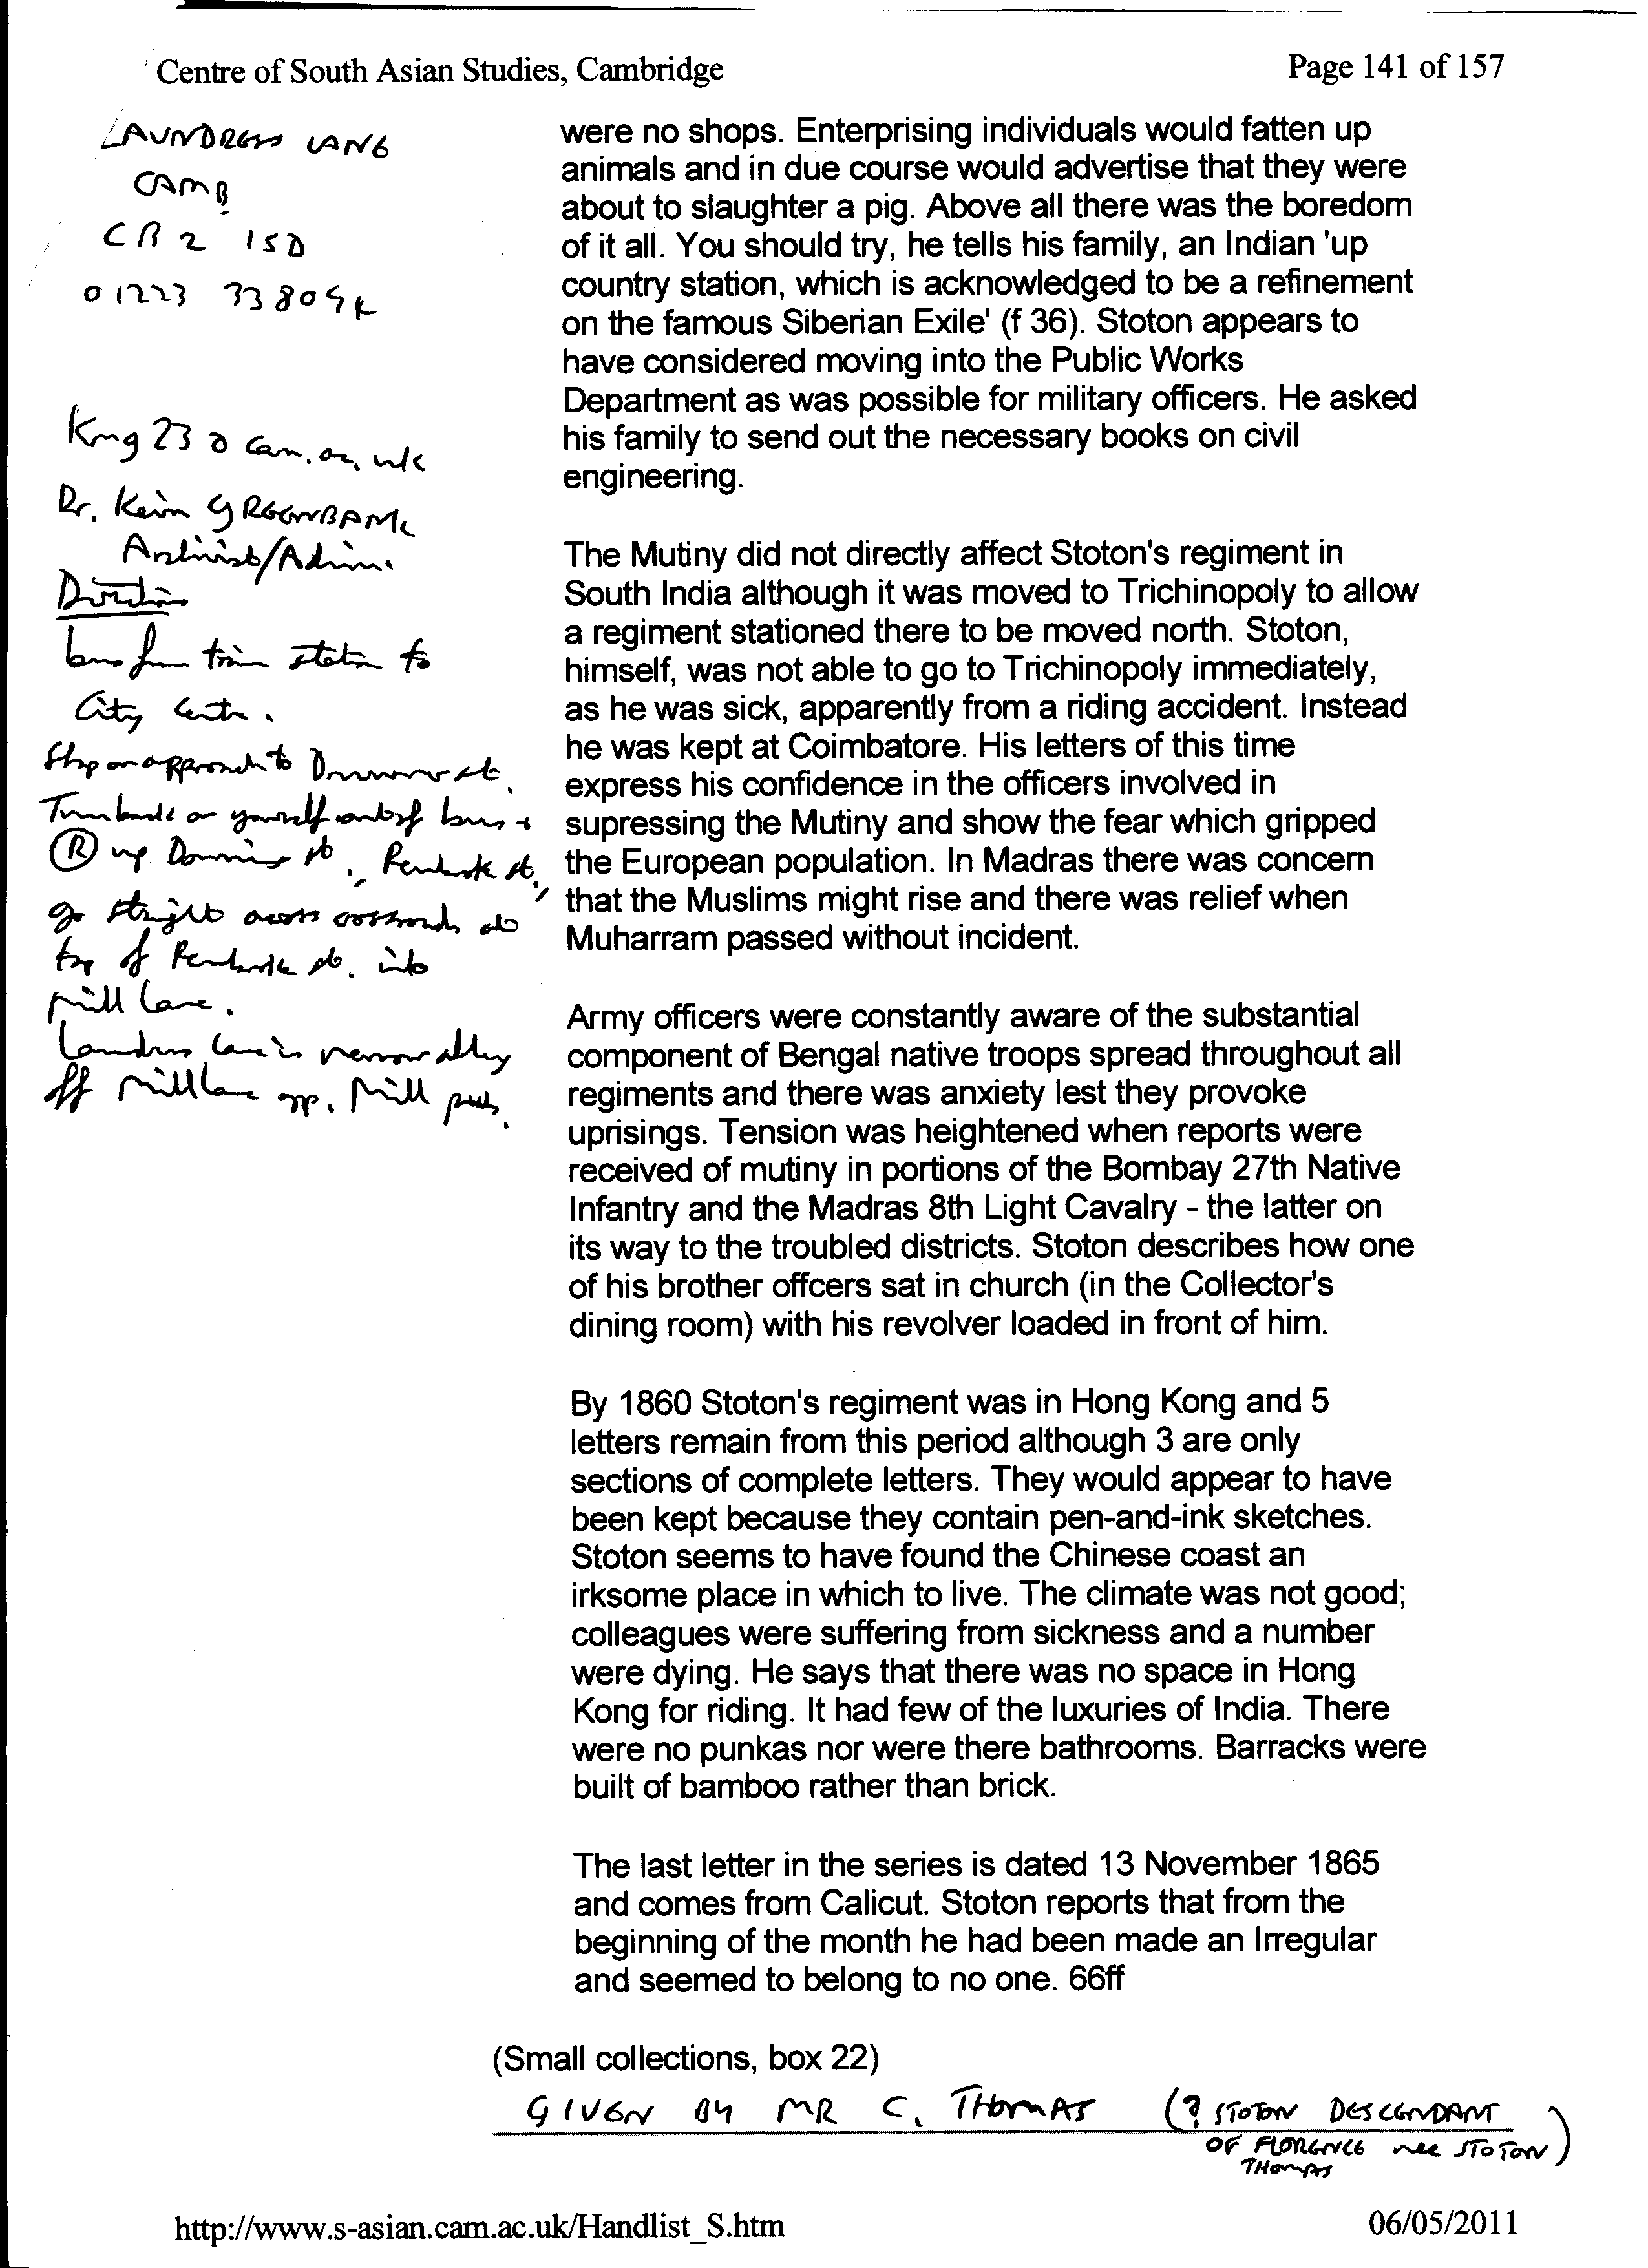 Centre of South Asian Studies, Cambridge
Page 141 of 157
LAUNDRESS LANE
CAMB
CB2 1SD
01223 338094
Kmg 23 @ cam.ac.uk
Dr. Kevin GREENBANK
Archivist/Admin.
Directions
bus from train station to
City Centre.
Stop on approach to Drummer st.
Turn back on yourself out of bus +
(R) up Downing st., Pembroke st.,
go straight across crossroads at
top of Pembroke st. into
Mill Lane.
Laundress Lane is narrow alley
off Mill Lane opp. Mill pub.
were no shops. Enterprising individuals would fatten up
animals and in due course would advertise that they were
about to slaughter a pig. Above all there was the boredom
of it all. You should try, he tells his family, an Indian 'up
country station, which is acknowledged to be a refinement
on the famous Siberian Exile' (f 36). Stoton appears to
have considered moving into the Public Works
Department as was possible for military officers. He asked
his family to send out the necessary books on civil
engineering.
The Mutiny did not directly affect Stoton's regiment in
South India although it was moved to Trichinopoly to allow
a regiment stationed there to be moved north. Stoton,
himself, was not able to go to Trichinopoly immediately,
as he was sick, apparently from a riding accident. Instead
he was kept at Coimbatore. His letters of this time
express his confidence in the officers involved in
supressing the Mutiny and show the fear which gripped
the European population. In Madras there was concern
that the Muslims might rise and there was relief when
Muharram passed without incident.
Army officers were constantly aware of the substantial
component of Bengal native troops spread throughout all
regiments and there was anxiety lest they provoke
uprisings. Tension was heightened when reports were
received of mutiny in portions of the Bombay 27th Native
Infantry and the Madras 8th Light Cavalry - the latter on
its way to the troubled districts. Stoton describes how one
of his brother offcers sat in church (in the Collector's
dining room) with his revolver loaded in front of him.
By 1860 Stoton's regiment was in Hong Kong and 5
letters remain from this period although 3 are only
sections of complete letters. They would appear to have
been kept because they contain pen-and-ink sketches.
Stoton seems to have found the Chinese coast an
irksome place in which to live. The climate was not good;
colleagues were suffering from sickness and a number
were dying. He says that there was no space in Hong
Kong for riding. It had few of the luxuries of India. There
were no punkas nor were there bathrooms. Barracks were
built of bamboo rather than brick.
The last letter in the series is dated 13 November 1865
and comes from Calicut. Stoton reports that from the
beginning of the month he had been made an Irregular
and seemed to belong to no one. 66ff
(Small collections, box 22)
GIVEN BY MR C. THOMAS (? STOTON DESCENDANT
OF FLORENCE nee STOTON)
THOMAS
http://www.s-asian.cam.ac.uk/Handlist_S.htm
06/05/2011